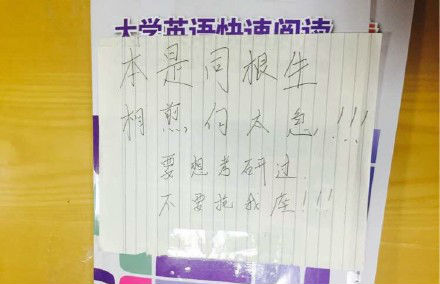 大学英语快速阅读
本是同根生
相煎何太急!!!
要想考研过.
不要抢我座!!!